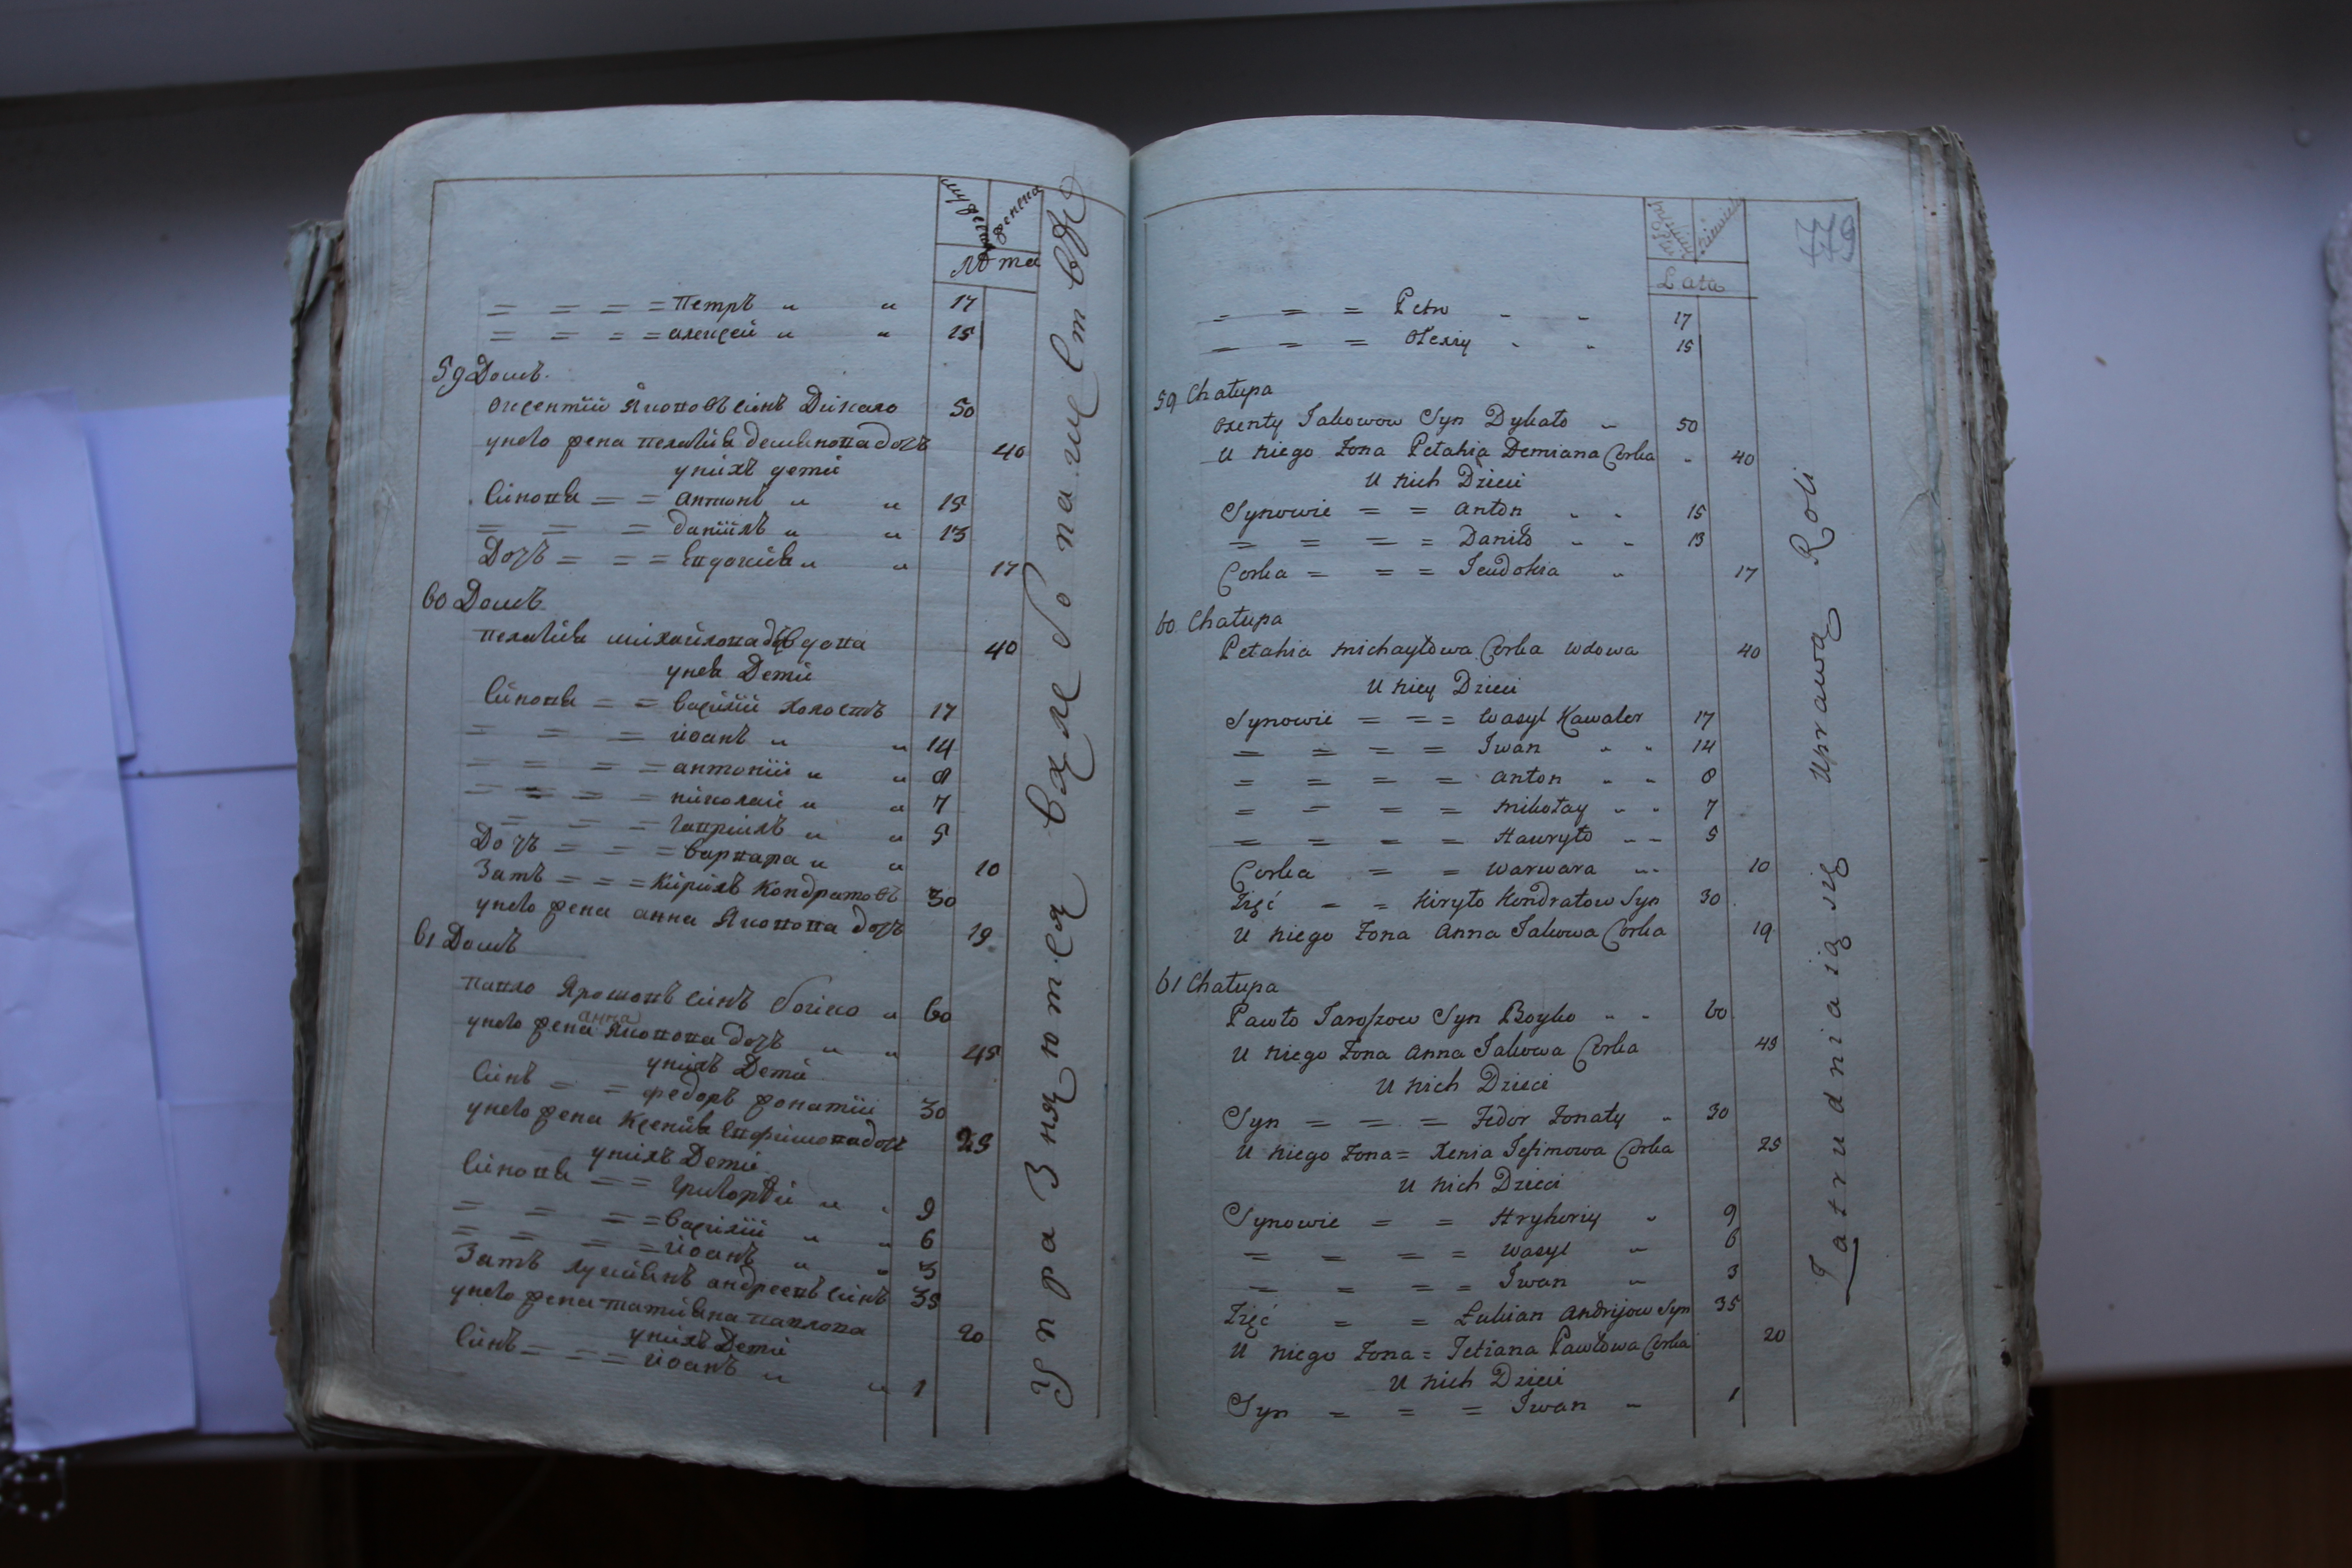 Лѣта
= = = = Петръ „ „ 17
= = = = алексей „ „ 15
59 Домъ
Оксентїй Яковов синъ Дикало 50
у него жена пелагия демянова дочъ 40
у нихъ дети
Синовя = = антонъ „ „ 15
= = = данїилъ „ „ 13
Дочъ = = = Евдокия „ „ 17
60 Домъ
пелагия михайлова вдова 40
у нея Дети
Синовя = = василїй холостъ 17
= = = иоанъ „ „ 14
= = = = антонїй „ „ 8
= = = = николай „ „ 7
= = = гаврїилъ „ „ 5
Дочъ = = = варвара „ „ 10
Зятъ = = = Кирилъ Кондратовъ 30
у него жена анна Яковова дочъ 19
61 Домъ
павло Ярошовъ синъ бойко „ 60
у него жена анна Яковова дочъ „ „ 45
у нихъ Дети
Синъ = = федоръ жонатїй 30
у него жена Ксения Евфимова дочъ 25
у нихъ Дети
Синовя = = григорїй „ „ 9
= = = = василїй „ „ 6
= = = = иоанъ „ „ 3
Зятъ лукиянъ андреевъ синъ 35
у него жена татияна павлова 20
у нихъ Дети
Синъ = = = иоанъ „ „ 1
Упражняются в хлебопашествѣ
779
Lata
= = = Petro „ „ 17
= = = Olexiy „ „ 15
59 Chałupa
Oxenty Jakowow Syn Dykało „ 50
U niego Żona Pełahia Demiana Corka „ 40
U nich Dzieci
Synowie = = Anton „ „ 15
= = = = Daniło „ „ 13
Corka = = = Jeudokia „ 17
60 Chałupa
Pełahia Michayłowa Corka wdowa 40
U niey Dzieci
Synowie = = = Wasyl Kawaler 17
= = = = Iwan „ „ 14
= = = = Anton „ „ 8
= = = = Mikołay „ „ 7
= = = = Hawryło „ „ 5
Corka = = Warwara „ „ 10
Zięć = = Kiryło Kondratow Syn 30
U niego Żona Anna Jakowa Corka 19
61 Chałupa
Pawło Jaroszow Syn Boyko „ „ 60
U niego Żona Anna Jakowa Corka 45
U nich Dzieci
Syn = = = Fedor Żonaty „ 30
U niego Żona = Xenia Jefimowa Corka 25
U nich Dzieci
Synowie = = Hryhoriy „ 9
= = = = Wasyl „ 6
= = = = Iwan „ 3
Zięć = = Łukian Andrijow Syn 35
U niego Żona = Tetiana Pawłowa Corka 20
U nich Dzieci
Syn = = = Iwan „ 1
Zatrudniaią się uprawą Roli